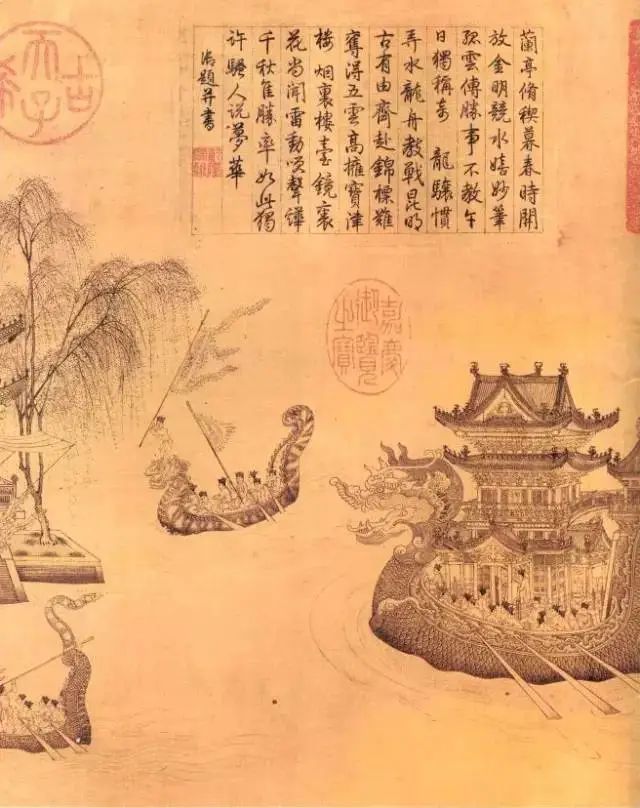 蘭亭脩禊暮春時開
放金明競水嬉妙筆
孤雲傳勝事不教午
日獨稱奇 龍驤慣
弄水龍舟教戰昆明
古有由齊赴錦標難
奪得五雲高擁寶津
樓 烟裏樓臺鏡裏
花尚聞雷動咲聲譁
千秋佳勝率如此獨
許騷人說夢華
御題并書
古希天子
嘉慶御覽之寶